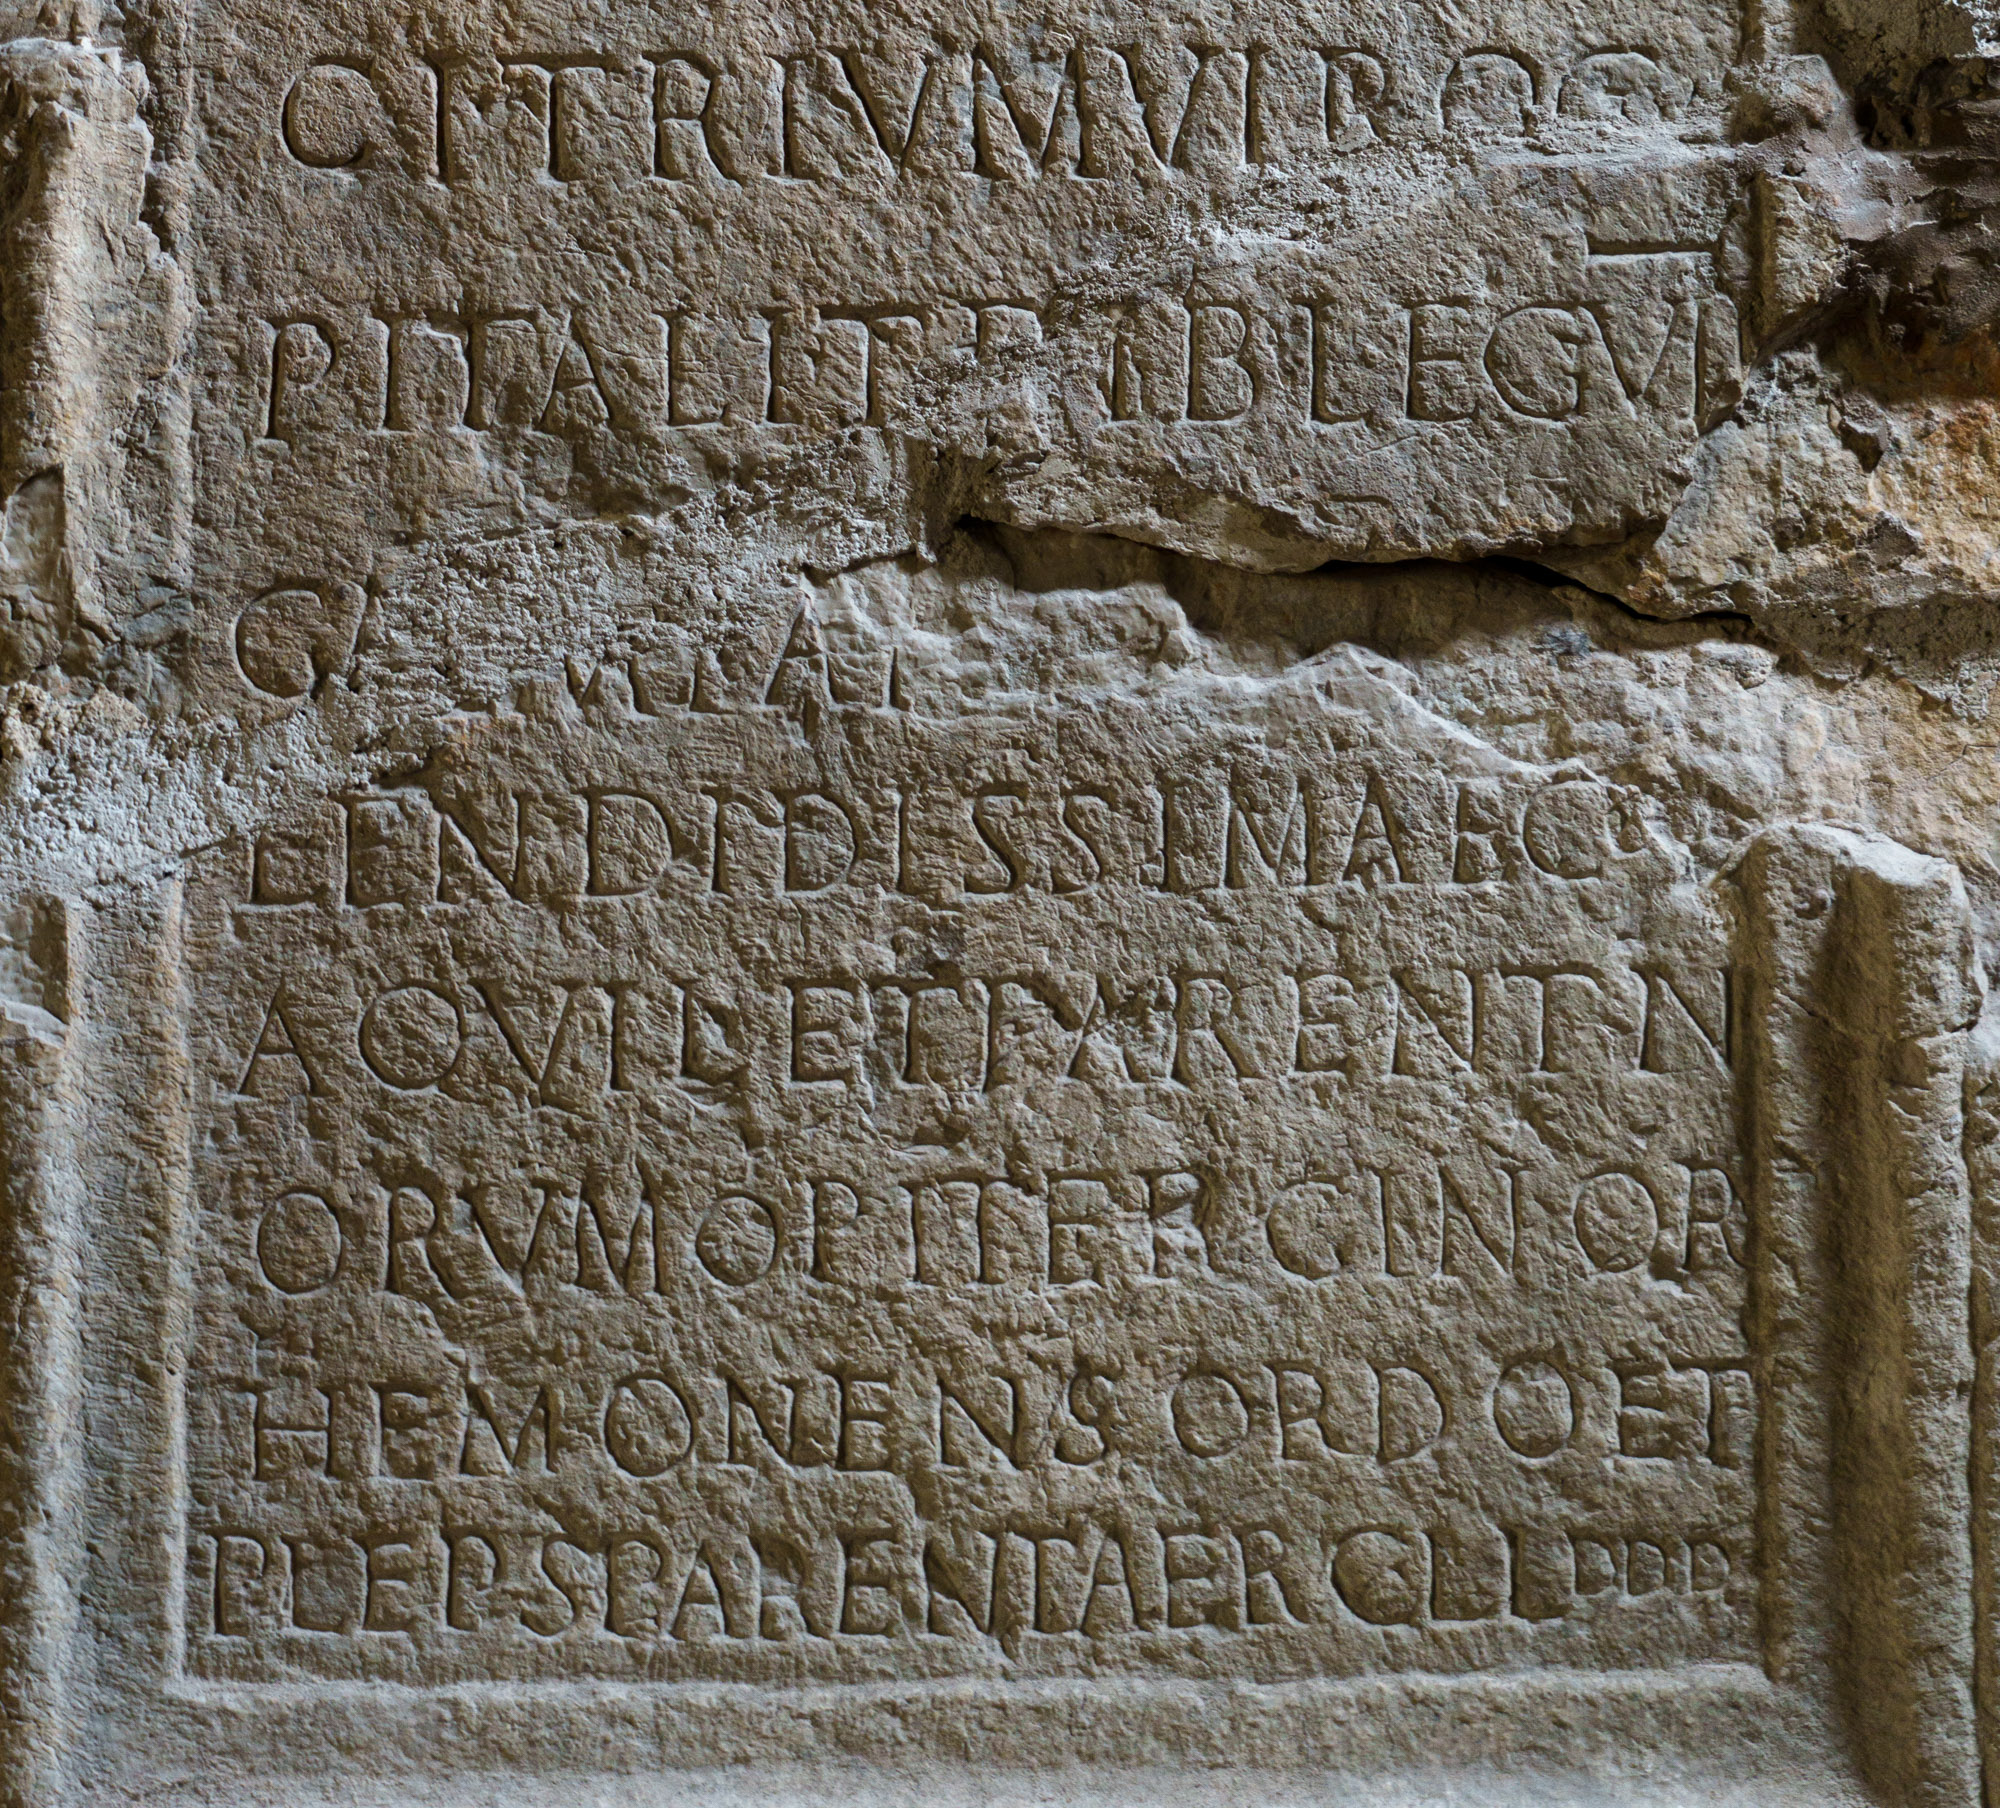 CITRIVMVIROC
PITALITRIBLEGVI
GA
LENDIDISSIMAEC
AQVIL ETPARENTN
ORVMOPITERGINOR
HEMONENS ORDOET
PLEPSPARENTAERCLLDDD